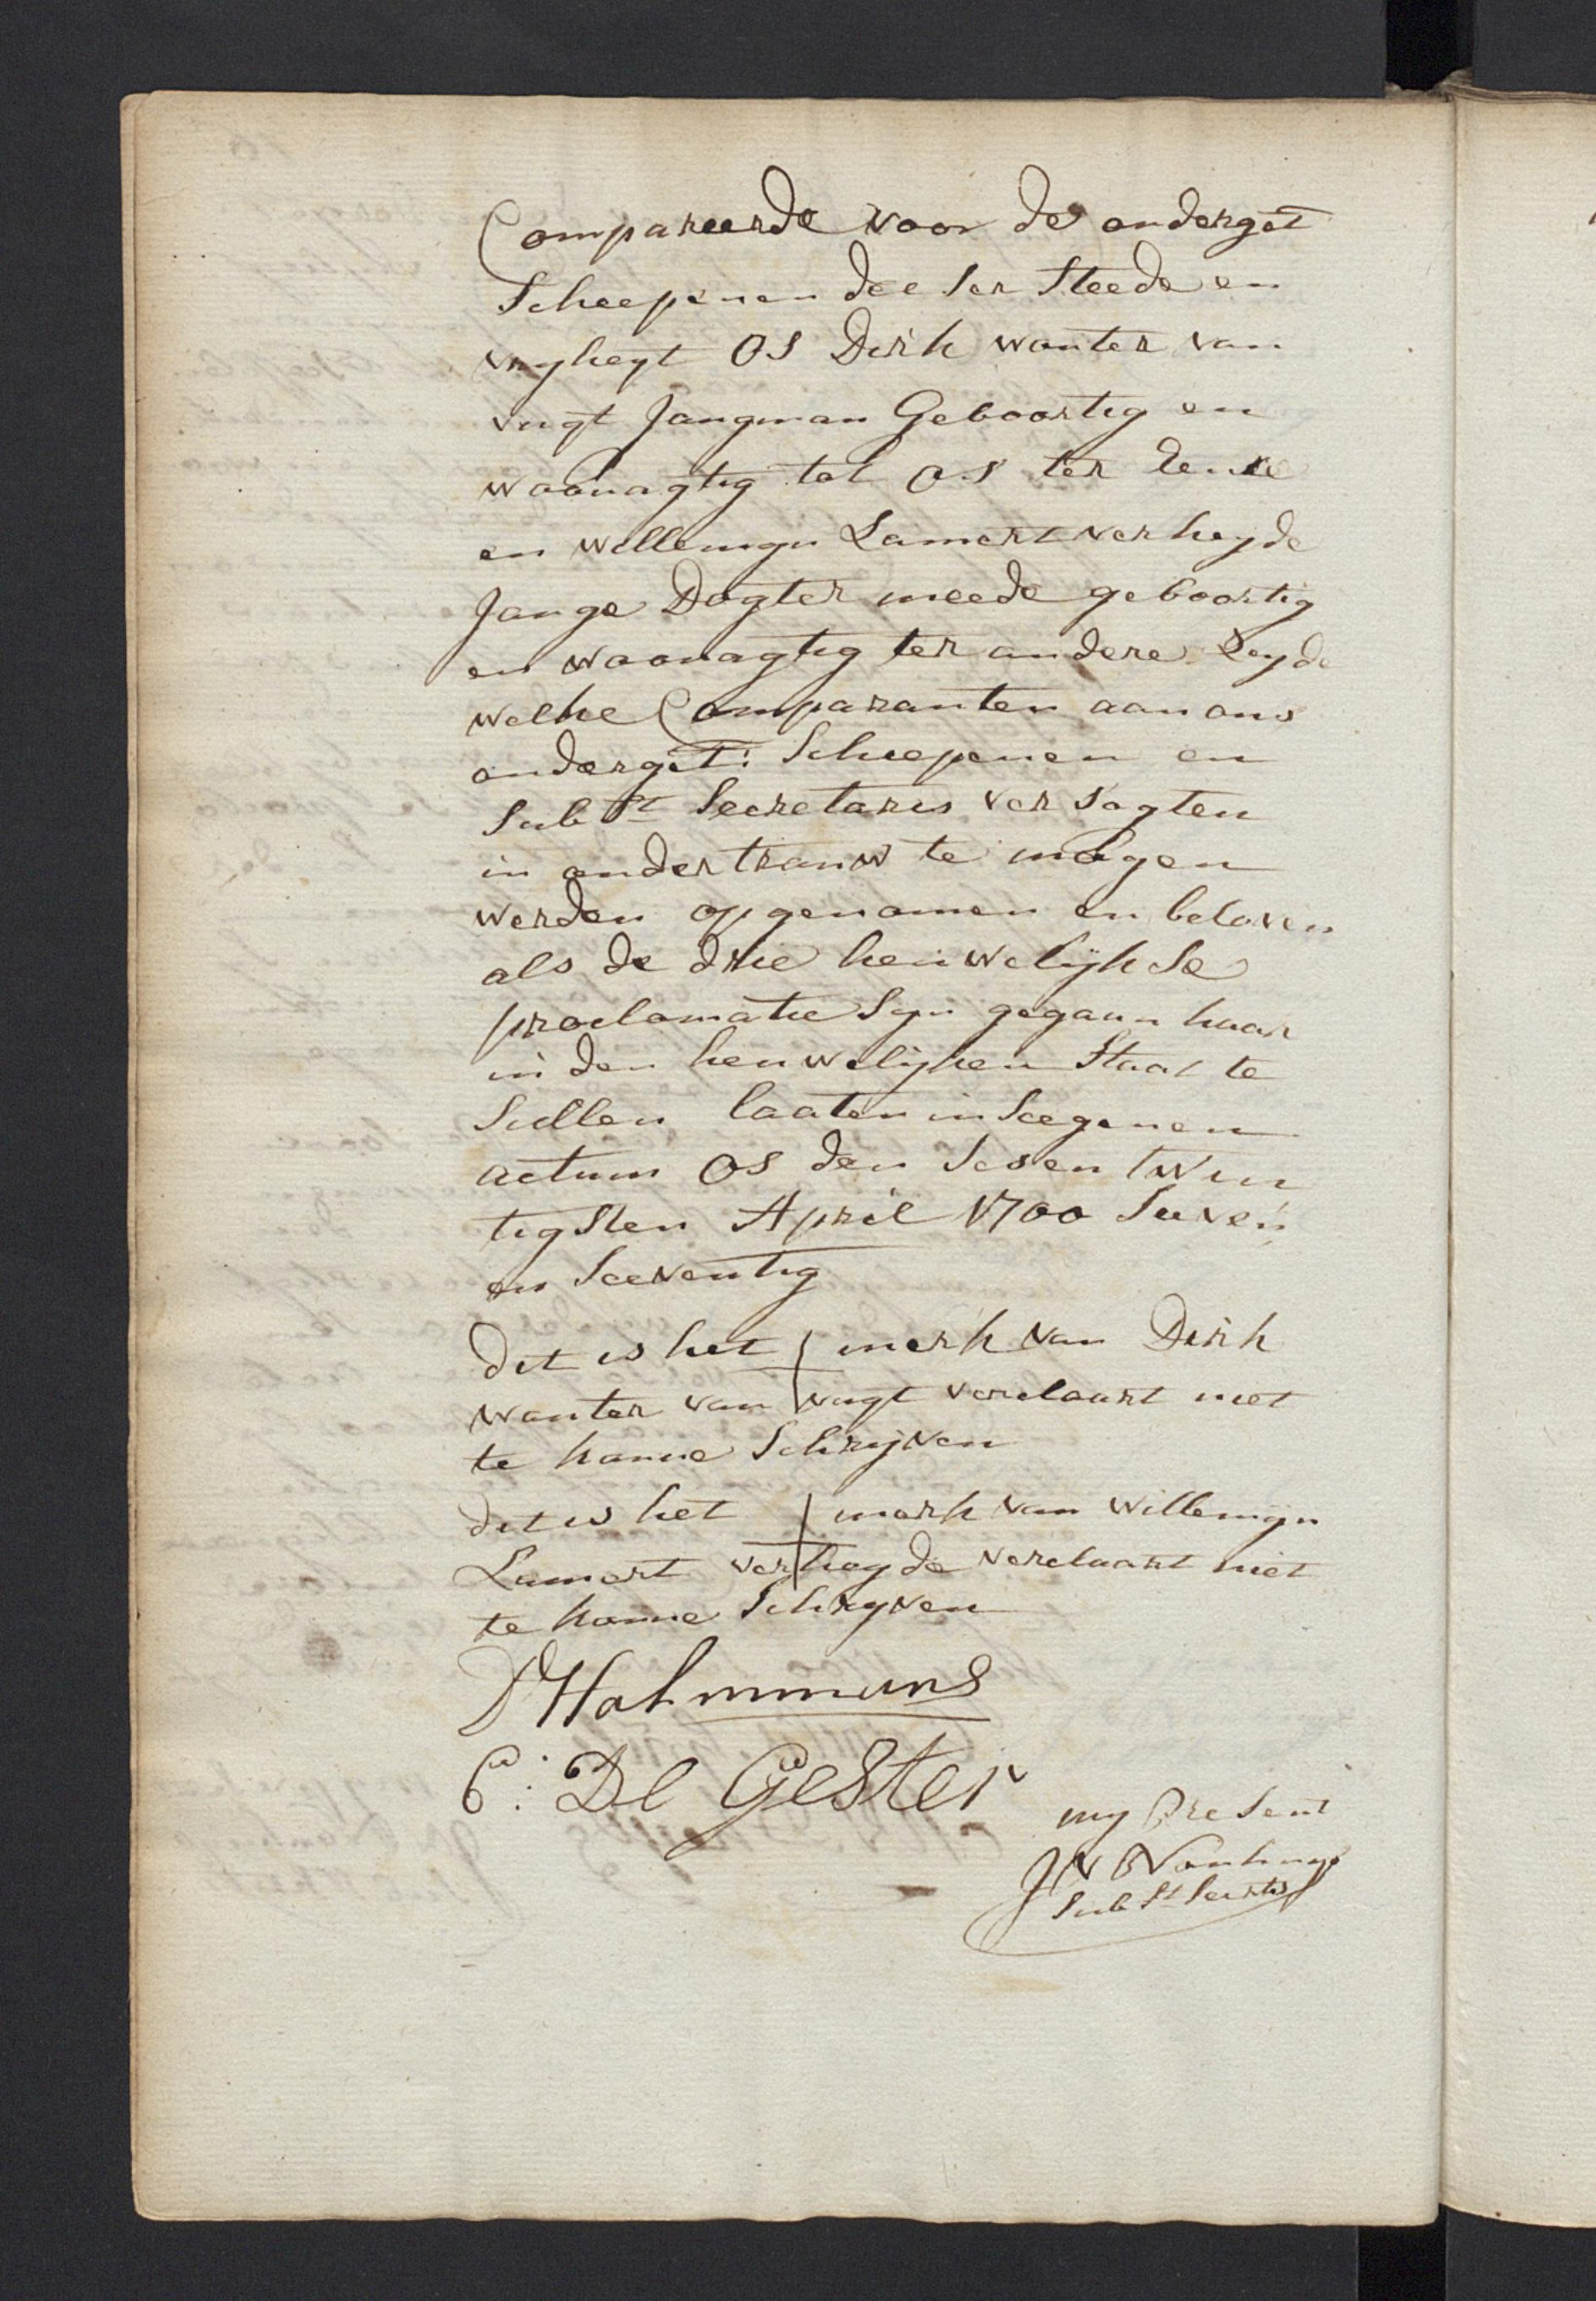 Compareerde voor de onderget
Scheepenen deeser Steede en
vryheyt Os Dirk wouter van
vugt Jongman Geboortig en
woonagtig tot Os ter Eenre
en willemyn Lamert verheyde
Jonge Dogter meede geboortig
en woonagtig ter andere Seyde
welke Comparanten aan ons
onderget: Scheepenen en
Subst Secretaris versogten
in ondertrouw te mogen
werden opgenomen en beloven
als de drie heuwelijkse
proclamatie Syn gegaan haar
in den heuwelijken Staat te
Sullen laaten inseegenen
actum Os den Sesen twin
tigsten April 1700 Seeven
en Seeventig
Dit is het merk van Dirk
wouter van vugt verclaart niet
te konne Schryven
dit is het merk van willemyn
Lamert verheyde verclaart niet
te konne Schryven
C: De Gester
my Present
Subst Secrts